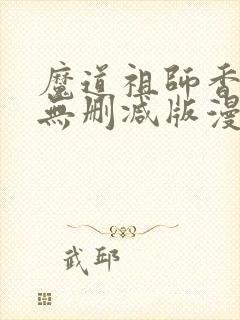 魔道祖師香
無删减版漫
武邱